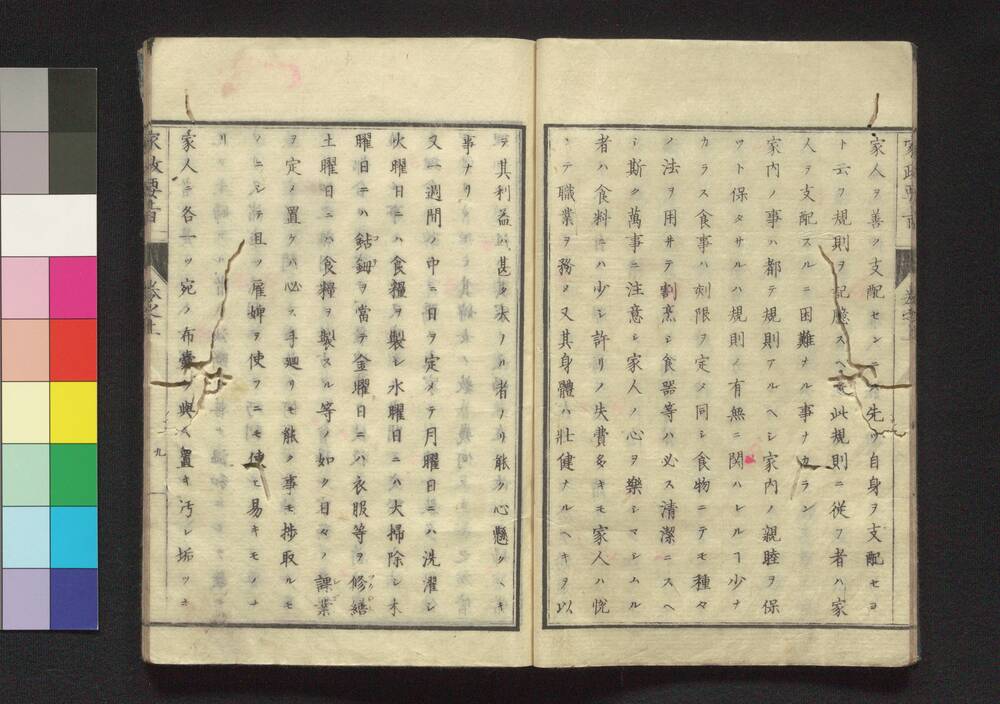 家人ヲ善ク支配セント先ツ自身ヲ支配セヨ
ト云フ規則ヲ記臆スヘシ此規則ニ従フ者ハ家
人ヲ支配スルニ困難ナル事ナカラン
家内ノ事ハ都テ規則アルヘシ家内ノ親睦ヲ保
ツト保タサルハ規則ノ有無ニ関ハレルヿ少ナ
カラス食事ハ刻限ヲ定メ同シ食物ニテモ種々
ノ法ヲ用ヰテ割烹シ食器等ハ必ス清潔ニスヘ
シ斯ク萬事ニ注意シ家人ノ心ヲ樂シマシムル
者ハ食料ニハ少シ許リノ失費多キモ家人ハ悦
ンテ職業ヲ務メ又其身體ハ壯健ナルヘキヲ以
テ其利益ハ甚タ大ナル者ナリ能ク心懸クヘキ
事ナリ
又一週間ノ中ニ日ヲ定メテ月曜日ニハ洗濯シ
火曜日ニハ食糧ヲ製シ水曜日ニハ大掃除シ木
曜日ニハ鈷鉧ヲ當テ金曜日ニハ衣服等ヲ修繕
土曜日ニハ食糧ヲ製スル等ノ如ク日々ノ課業
ヲ定メ置クハ心ス手廻リモ能ク事モ捗取ルモ
ノニシテ且ツ雇婢ヲ使フニモ使ヒ易キモノナ
リ
家人ニ各一ツ宛ノ布嚢ヲ與ヘ置キ汚レ垢ツキ
家政要旨
九